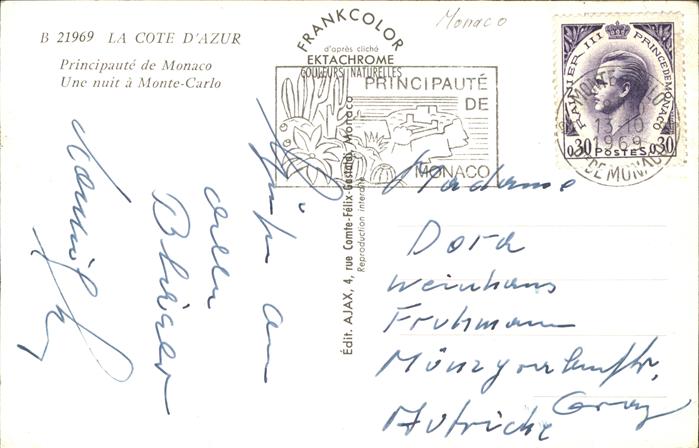 B 21969 LA COTE D'AZUR
Principauté de Monaco
Une nuit à Monte-Carlo
FRANKCOLOR
d'après cliché
EKTACHROME
COULEURS NATURELLES
Monaco
PRINCIPAUTÉ
DE
MONACO
RAINIER III PRINCE DE MONACO
0.30 POSTES 0.30
13-10
1969
DE MONACO
Édit. AJAX, 4, rue Comte-Félix-Gastaldi, Monaco
Reproduction interdite
an
alle
Madame
Dora
Weinhaus
Fruhmann
Münzgrabenstr.
Graz
Autriche